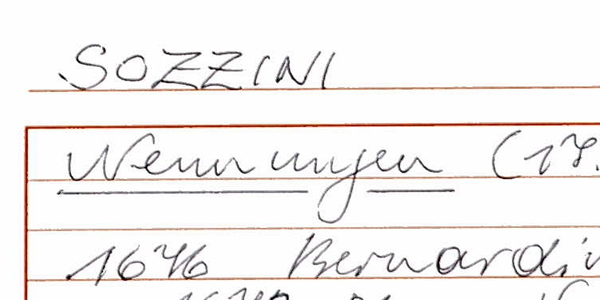 SOZZINI
Nennungen (17.
1676 Bernardin